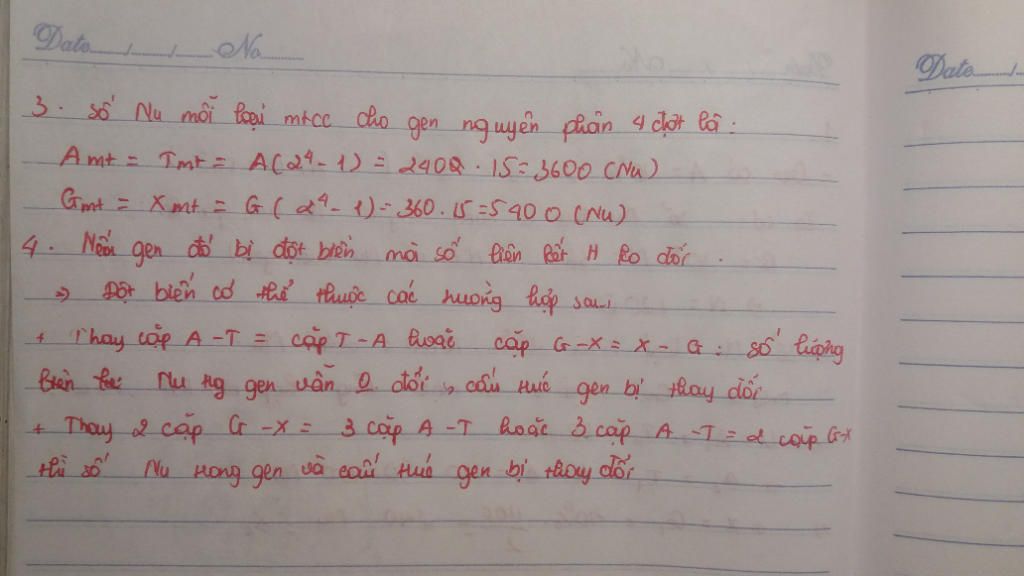 Date...../...../..... No..........
Date...../...
3. số Nu mỗi loại mtcc cho gen nguyên phân 4 đợt là:
Amt = Tmt = A(2⁴ - 1) = 240 . 15 = 3600 (Nu)
Gmt = Xmt = G ( 2⁴ - 1) = 360 . 15 = 5400 (Nu)
4. Nếu gen đó bị đột biến mà số liên kết H ko đổi.
=> Đột biến có thể thuộc các trường hợp sau:
+ Thay cặp A - T = cặp T - A hoặc cặp G - X = X - G : số lượng
Nu trg gen vẫn 0 đổi, cấu trúc gen bị thay đổi
+ Thay 2 cặp G - X = 3 cặp A - T hoặc 3 cặp A - T = 2 cặp G-X
thì số Nu trong gen và cấu trúc gen bị thay đổi